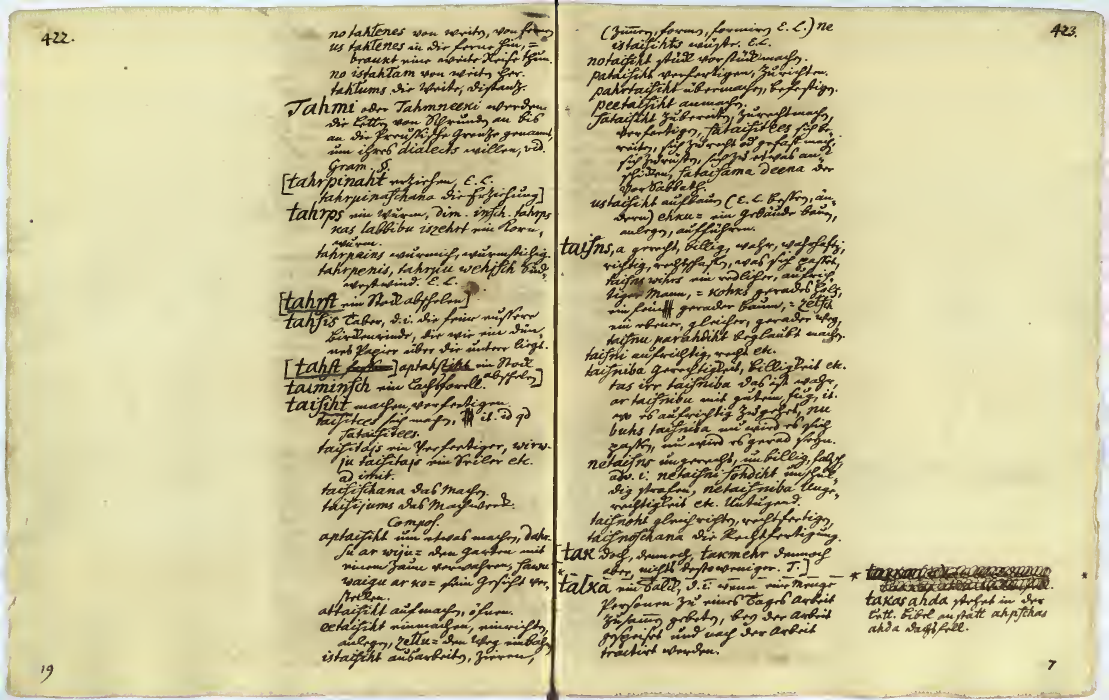 422.
no tahlenes von weiten, von fern
us tahlenes in die ferne hin,
braukt eine weite Reise thun.
no istahlam von weiten her.
tahlums die Weite, Distanz.
Tahmi oder Tahmneeki werden
die Letten von Schrunden an bis
an die Preußische Grentze genannt,
um ihres dialects willen, vid.
Gram. §
[tahrpinaht erziehen, E. L.
tahrpinaschana die Erziehung]
tahrps ein Wurm, Dim. insch. tahrps
kas labbibu iszehrt ein Korn,
wurm.
tahrpains wurmich, wurmstichig.
tahrpenis, tahrpju wehjsch Süd,
westwind. E. L.
[tahrst ein Stück abschelen]
tahsis Taber, d.i. die feine äussere
Birkenrinde, die wie ein dün,
nes Papier über die untere liegt.
[tahst aptahstiht ein Stück
abschelen]
taiminsch ein Lachsforell.
taisiht machen, verfertigen.
taisitees sich machen, it. id qd
sataisitees.
taisitajs ein Verfertiger, virwju
taisitajs ein Seiler etc.
taisischana das Machen.
taisijums das Machwerk.
Compos.
aptaisiht um etwas machen,
ar wiju den Garten mit
einem Zaun verwahren, sawu
waigu ar ko sein Gesicht ver,
stellen.
attaisiht aufmachen, öfnen.
eetaisiht einmachen, einrichten,
anlegen, zellu den Weg
istaisiht ausarbeiten, zieren,
19
423.
(Zieren, formen, formiren E. L.) ne
istaisihts wüste. E. L.
notaisiht
pataisiht verfertigen, zurichten.
pahrtaisiht übermachen,
peetaisiht anmachen.
sataisiht zubereiten, zurechtmachen,
verfertigen, sataisitees sich be,
reiten, sich zurecht od gefast machen,
sich zurüsten, sich zu etwas an,
schicken, sataisama deena der
Vor Sabbath.
ustaisiht aufbauen (E. L.
ehku ein Gebäude bauen,
anlegen, aufführen.
taisns, a gerecht, billig, wahr, wahrhaftig,
richtig, rechtschaffen, was sich passet,
taisns wihrs ein redlicher, aufrich,
tiger Mann, kohks gerades Holz,
ein gerader Baum, zelsch
ein ebener, gleicher, gerader Weg,
taisnu parahdiht beglaubt machen.
taisni aufrichtig, recht etc.
taisniba Gerechtigkeit, Billigkeit etc.
tas irr taisniba das ist wahr,
ar taisnibu mit gutem fug, it.
wo es aufrichtig zugehet, nu
buhs taisniba nu wird es sich
passen, nu wird es gerad seyn.
netaisns ungerecht, unbillig, falsch,
adv. i. netaisni sohdiht unschul,
dig strafen, netaisniba Unge,
rechtigkeit etc. Untugend.
taisnoht gleich richten, rechtfertigen,
taisnoschana die Rechtfertigung.
[tak doch, dennoch, takmehr dennoch
aber, nichts destoweniger. T.]
talka ein Talk, d.i. wenn eine Menge
Personen zu eines Tages Arbeit
zusamen gebeten, bey der Arbeit
gespeiset und nach der Arbeit
tractirt werden.
* takas ahda stehet in der
Lett. Bibel anstatt ahpschas
ahda Dachsfell.
7